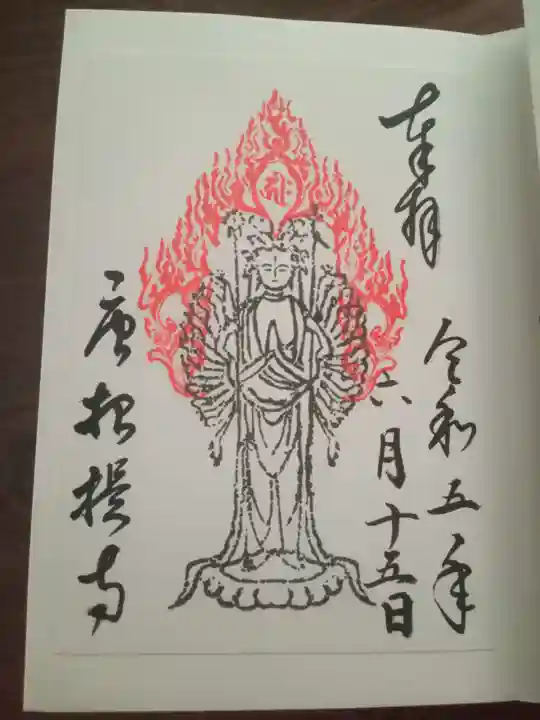 奉拝
令和五年
六月十五日
唐招提寺